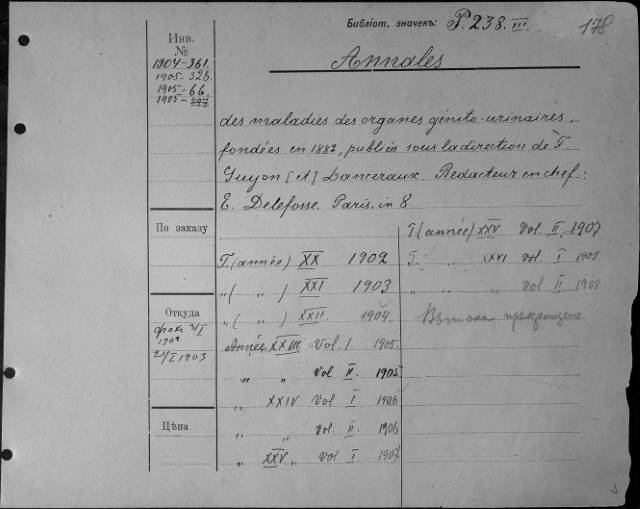 Библіот. значекъ: P. 238. III.
178
Инв.
№
1904-361.
1905-326.
1905-66.
1905-397
Annales
des maladies des organes génito-urinaires,
fondées en 1882, publiés sous la direction de F.
Guyon [et] Lanceraux. Rédacteur en chef:
E. Delefosse. Paris. in 8.
По заказу
Т. (année) XX 1902
"( " ) XXI 1903
"( " ) XXII. 1904.
Année XXIII Vol. I. 1905.
" " Vol II. 1905
" XXIV Vol I 1906
" " Vol. II. 1906
" XXV " Vol. I. 1907
T. (année) XXV Vol. II. 1907
T. " XXVI Vol. I 1908.
" " Vol II 1908.
Выписка прекращена
Откуда
21/I 1903
Цѣна